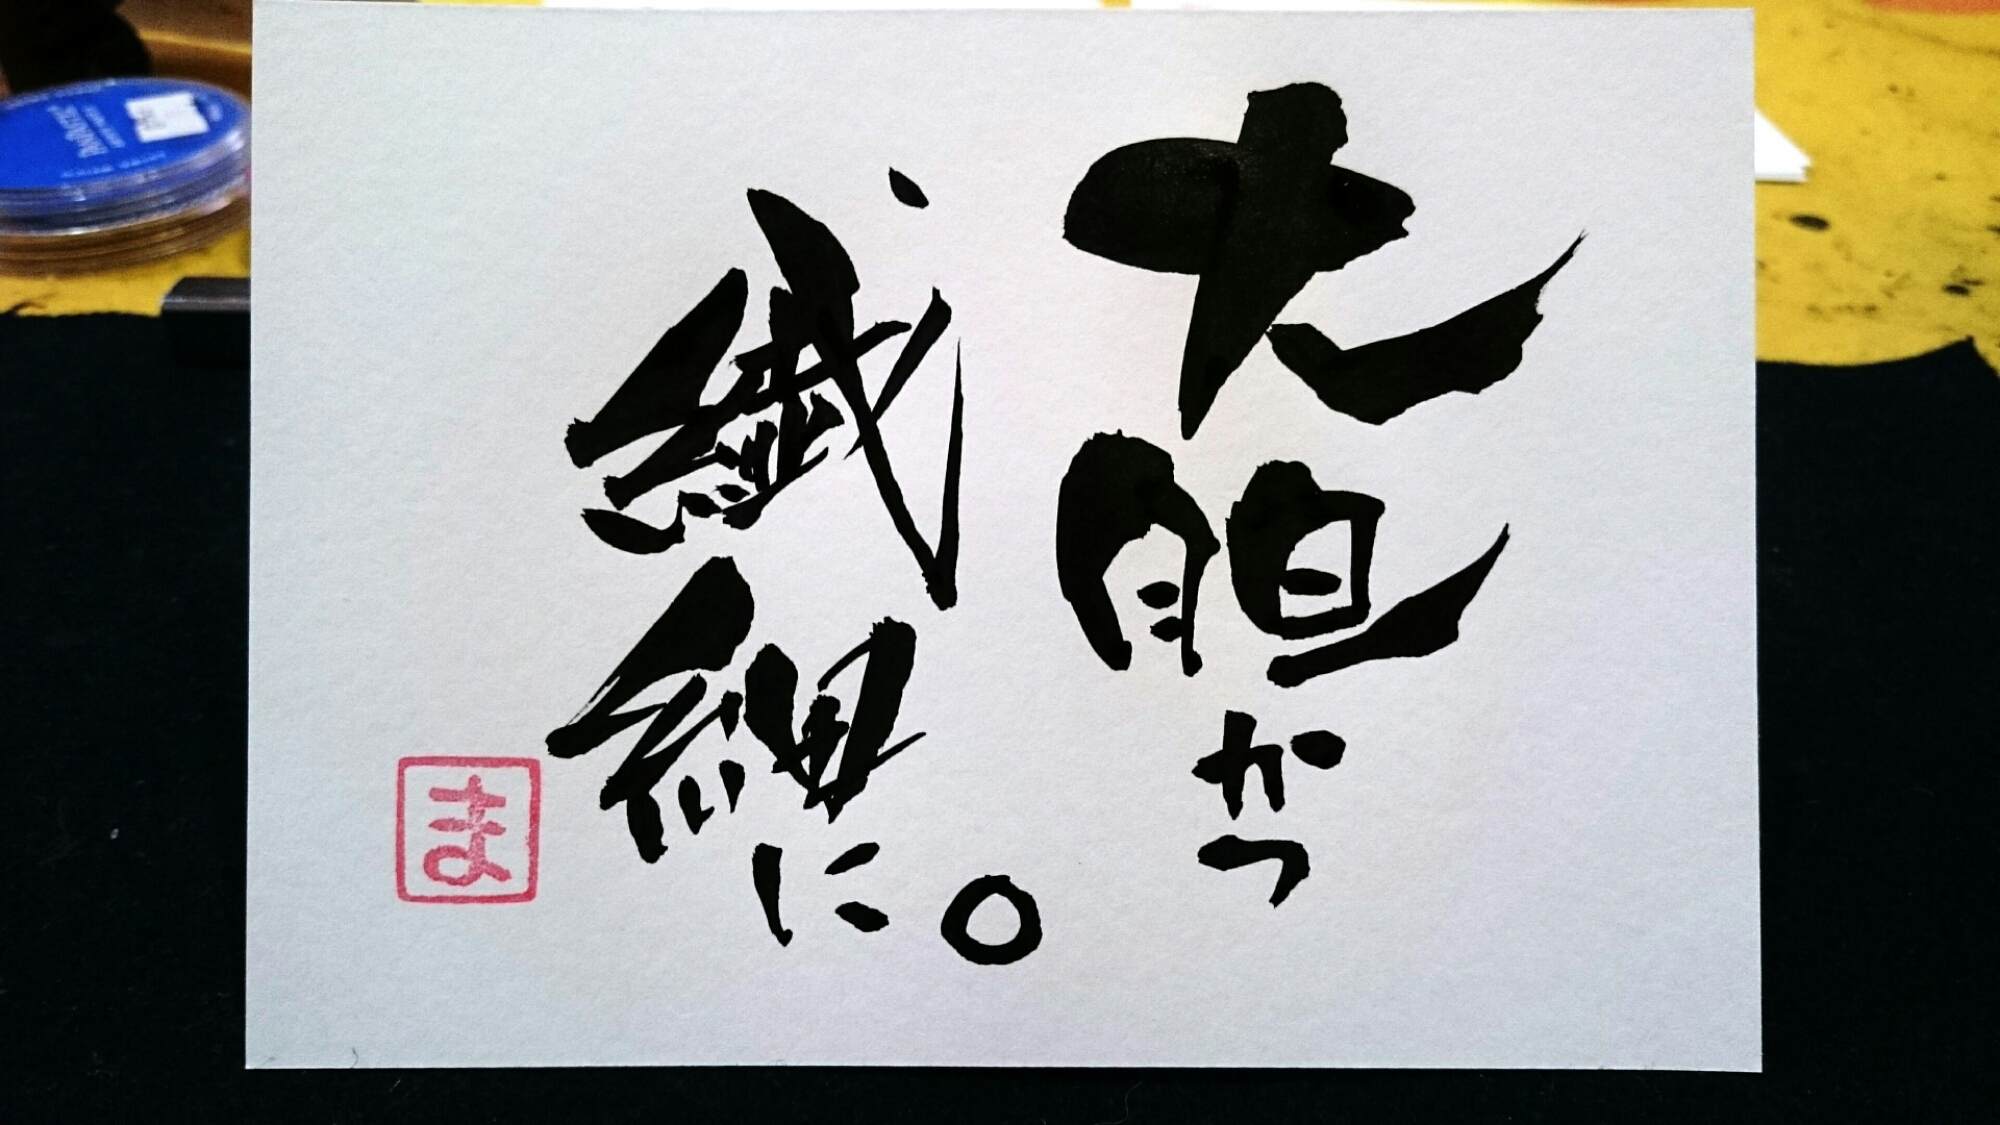 大胆かつ
繊細に。
ま